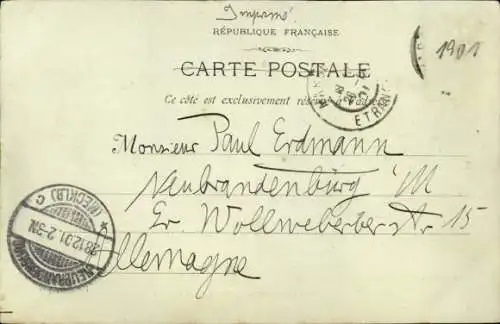 Imprimé
RÉPUBLIQUE FRANÇAISE
1901
CARTE POSTALE
Ce côté est exclusivement réservé à l'adresse
ETRANG
Monsieur Paul Erdmann
Neubrandenburg i/M
Gr. Wollweberstr 15
Allemagne
NEUBRANDENBURG
28.12.01. 2-3N.
* (MECKLB) C